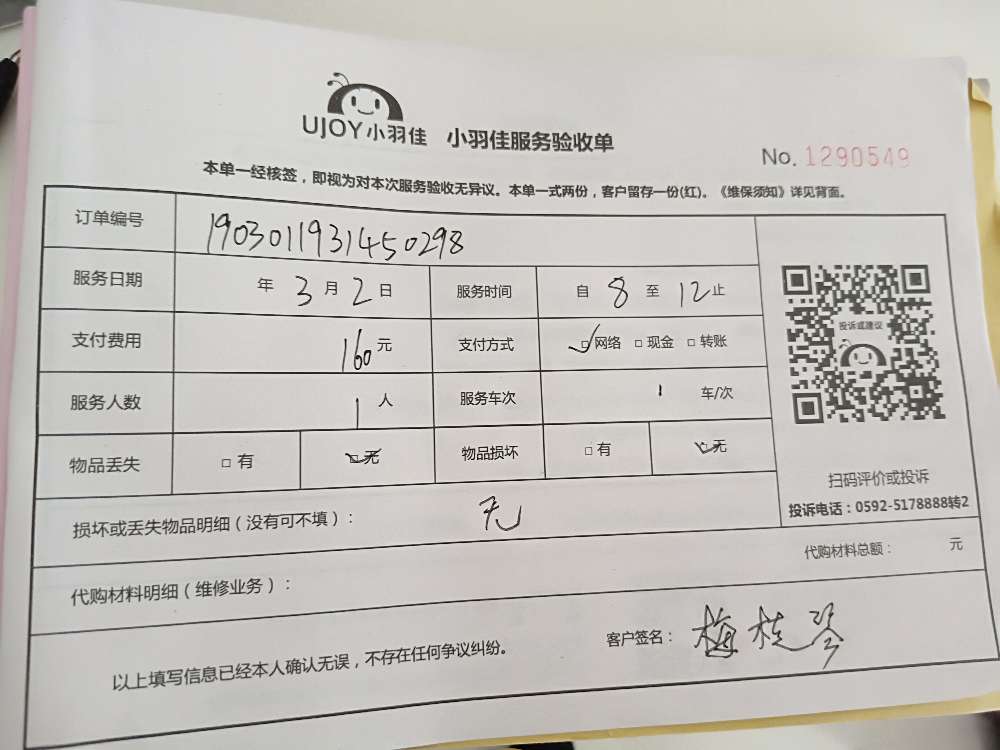 UJOY小羽佳 小羽佳服务验收单
No. 1290549
本单一经核签，即视为对本次服务验收无异议。本单一式两份，客户留存一份(红)。《维保须知》详见背面。
订单编号 1903011931450298
服务日期 年 3 月 2 日 服务时间 自 8 至 12 止
支付费用 160 元 支付方式 ☑网络 □现金 □转账
服务人数 1 人 服务车次 1 车/次
物品丢失 □有 ☑无 物品损坏 □有 ☑无
投诉或建议
扫码评价或投诉
投诉电话：0592-5178888转2
损坏或丢失物品明细（没有可不填）： 无
代购材料明细（维修业务）： 代购材料总额： 元
以上填写信息已经本人确认无误，不存在任何争议纠纷。 客户签名： 梅桂琴